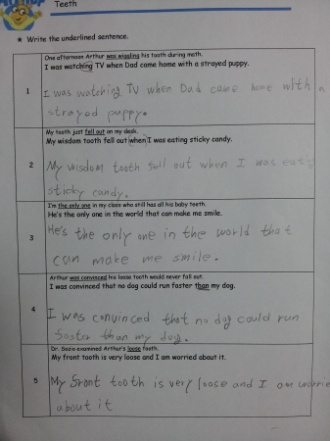 Teeth
★ Write the underlined sentence.
One afternoon Arthur was wiggling his tooth during math.
I was watching TV when Dad came home with a strayed puppy.
1
I was watching TV when Dad came home with a
strayed puppy.
My tooth just fell out on my desk.
My wisdom tooth fell out when I was eating sticky candy.
2
My wisdom tooth fell out when I was eating
sticky candy.
I'm the only one in my class who still has all his baby teeth.
He's the only one in the world that can make me smile.
3
He's the only one in the world that
can make me smile.
Arthur was convinced his loose tooth would never fall out.
I was convinced that no dog could run faster than my dog.
4
I was convinced that no dog could run
faster than my dog.
Dr. Sozio examined Arthur's loose tooth.
My front tooth is very loose and I am worried about it.
5
My front tooth is very loose and I am worrie
about it